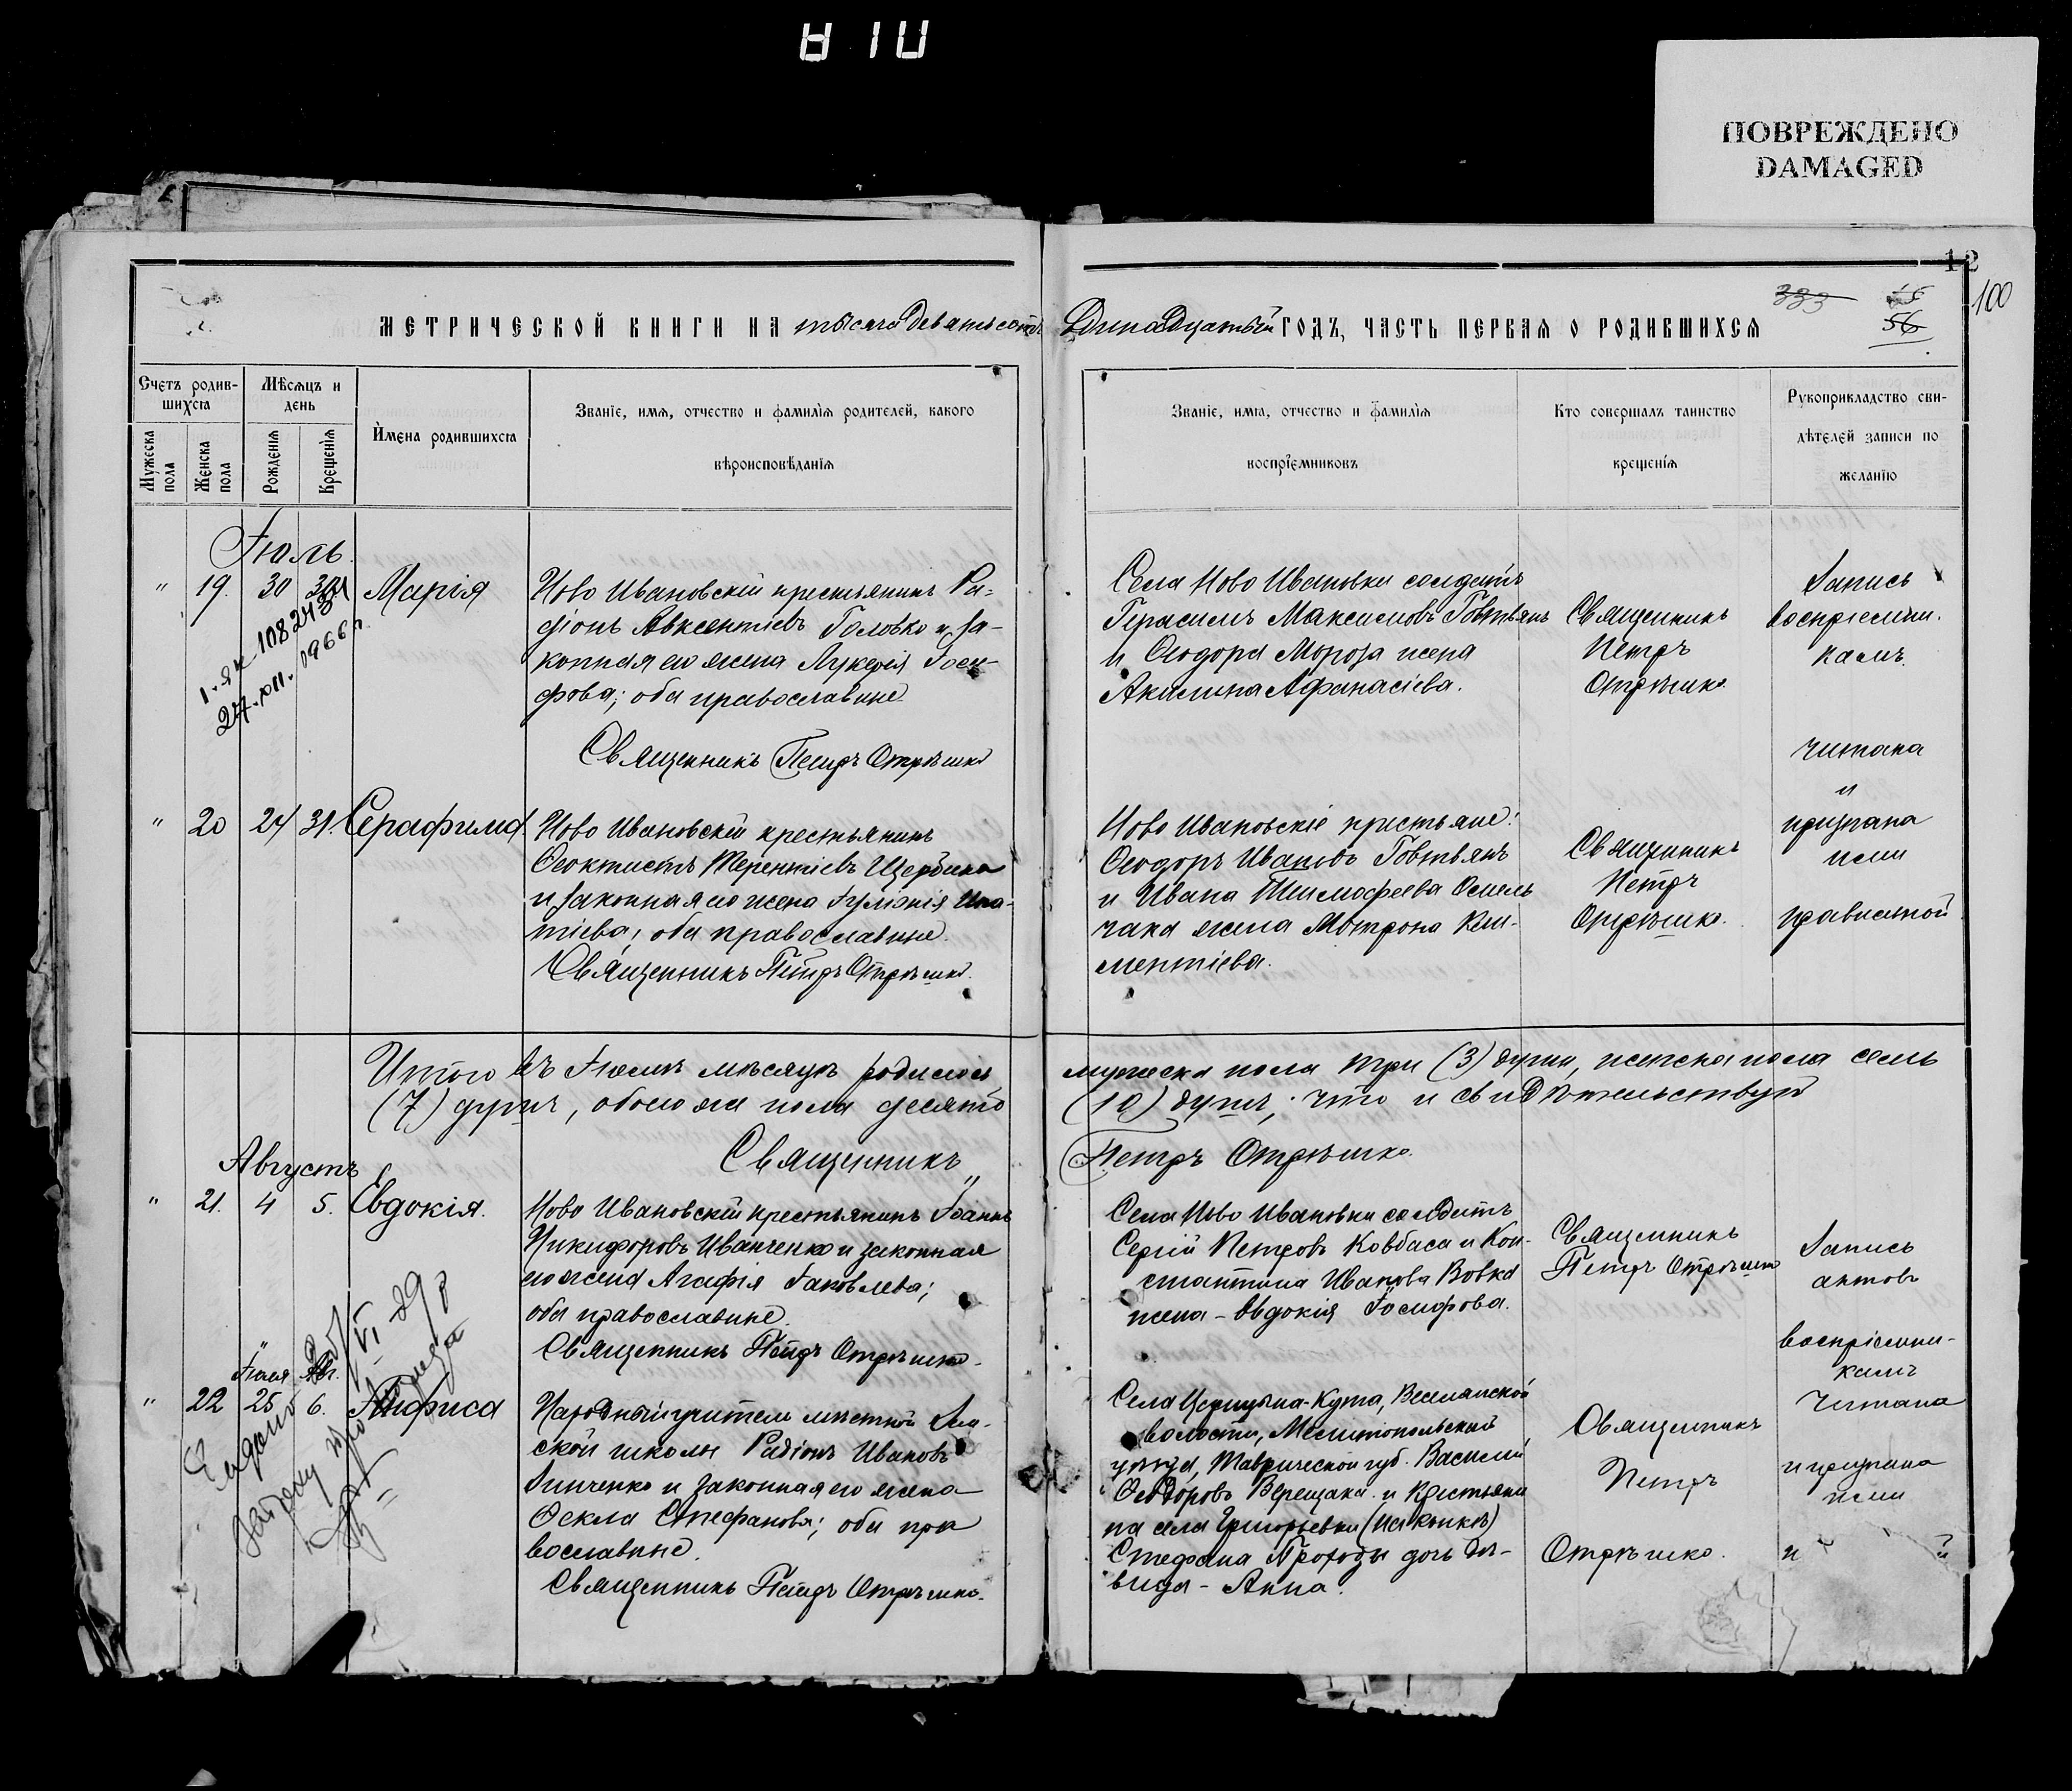 ПОВРЕЖДЕНО
DAMAGED
12
333
56
100
МЕТРИЧЕСКОЙ КНИГИ НА тысяча девятьсотъ
Одинадцатый ГОДЪ, ЧАСТЬ ПЕРВАЯ О РОДИВШИХСЯ
Счетъ родив-
шихся
Мѣсяцъ и
день
Мужеска
пола
Женска
пола
Рожденія
Крещенія
Имена родившихся
Званіе, имя, отчество и фамилія родителей, какого
вѣроисповѣданія
Званіе, имя, отчество и фамилія
воспріемниковъ
Кто совершалъ таинство
крещенія
Рукоприкладство сви-
дѣтелей записи по
желанію
Іюль
" 19. 30 Марія
Ново Ивановскій крестьянинъ Ра-
діонъ Авксентіевъ Головко и за-
конная его жена Лукерія Іоси-
фова; оба православные
Священникъ Петръ Отрѣшко
Села Ново Ивановки солдатъ
Герасимъ Максимовъ Говтвянъ
и Ѳеодора Мороза жена
Акилина Афанасіева.
Священникъ
Петръ
Отрѣшко
Запись
воспріемни-
камъ
читана
и
признана
ими
правильной
" 20 24 31. Серафима
Ново Ивановскій крестьянинъ
Ѳеоктистъ Терентіевъ Щербина
и законная его жена Іуліанія Ипа-
тіева; оба православные.
Священникъ Петръ Отрѣшко.
Ново Ивановскіе крестьяне:
Ѳеодоръ Ивановъ Говтвянъ
и Ивана Тимофеева Омель
чака жена Мотрона Кли-
ментіева.
Священникъ
Петръ
Отрѣшко.
Итого въ Іюлѣ мѣсяцѣ родилось
мужеска пола три (3) души, женска пола семь
(7) душъ, обоего же пола десять
(10) душъ; что и свидѣтельствую
Священникъ
Петръ Отрѣшко.
Августъ
" 21. 4 5. Евдокія.
Ново Ивановскій крестьянинъ Іоаннъ
Никифоровъ Иванченко и законная
его жена Агафія Іаковлева;
оба православные.
Священникъ Петръ Отрѣшко.
Села Ново Ивановки солдатъ
Сергій Петровъ Ковбаса и Кон-
стантина Иванова Вовка
жена - Евдокія Іосифова.
Священникъ
Петръ Отрѣшко
Запись
актовъ
воспріемни-
камъ
Читана
и признана
ими
Іюля Авг.
" 22 25 6. Анфиса
Народный учитель мѣстной Зем-
ской школы Радіонъ Ивановъ
Зинченко и законная его жена
Ѳекла Стефанова; оба пра
вославные.
Священникъ Петръ Отрѣшко.
Села Царицына-Кута, Веселянской
волости, Мелитопольскаго
уѣзда, Таврической губ. Василій
Ѳеодоровъ Верещака и крестьяни
на села Григорьевки
Стефана дочь дѣ-
вица - Анна.
Священникъ
Петръ
Отрѣшко.